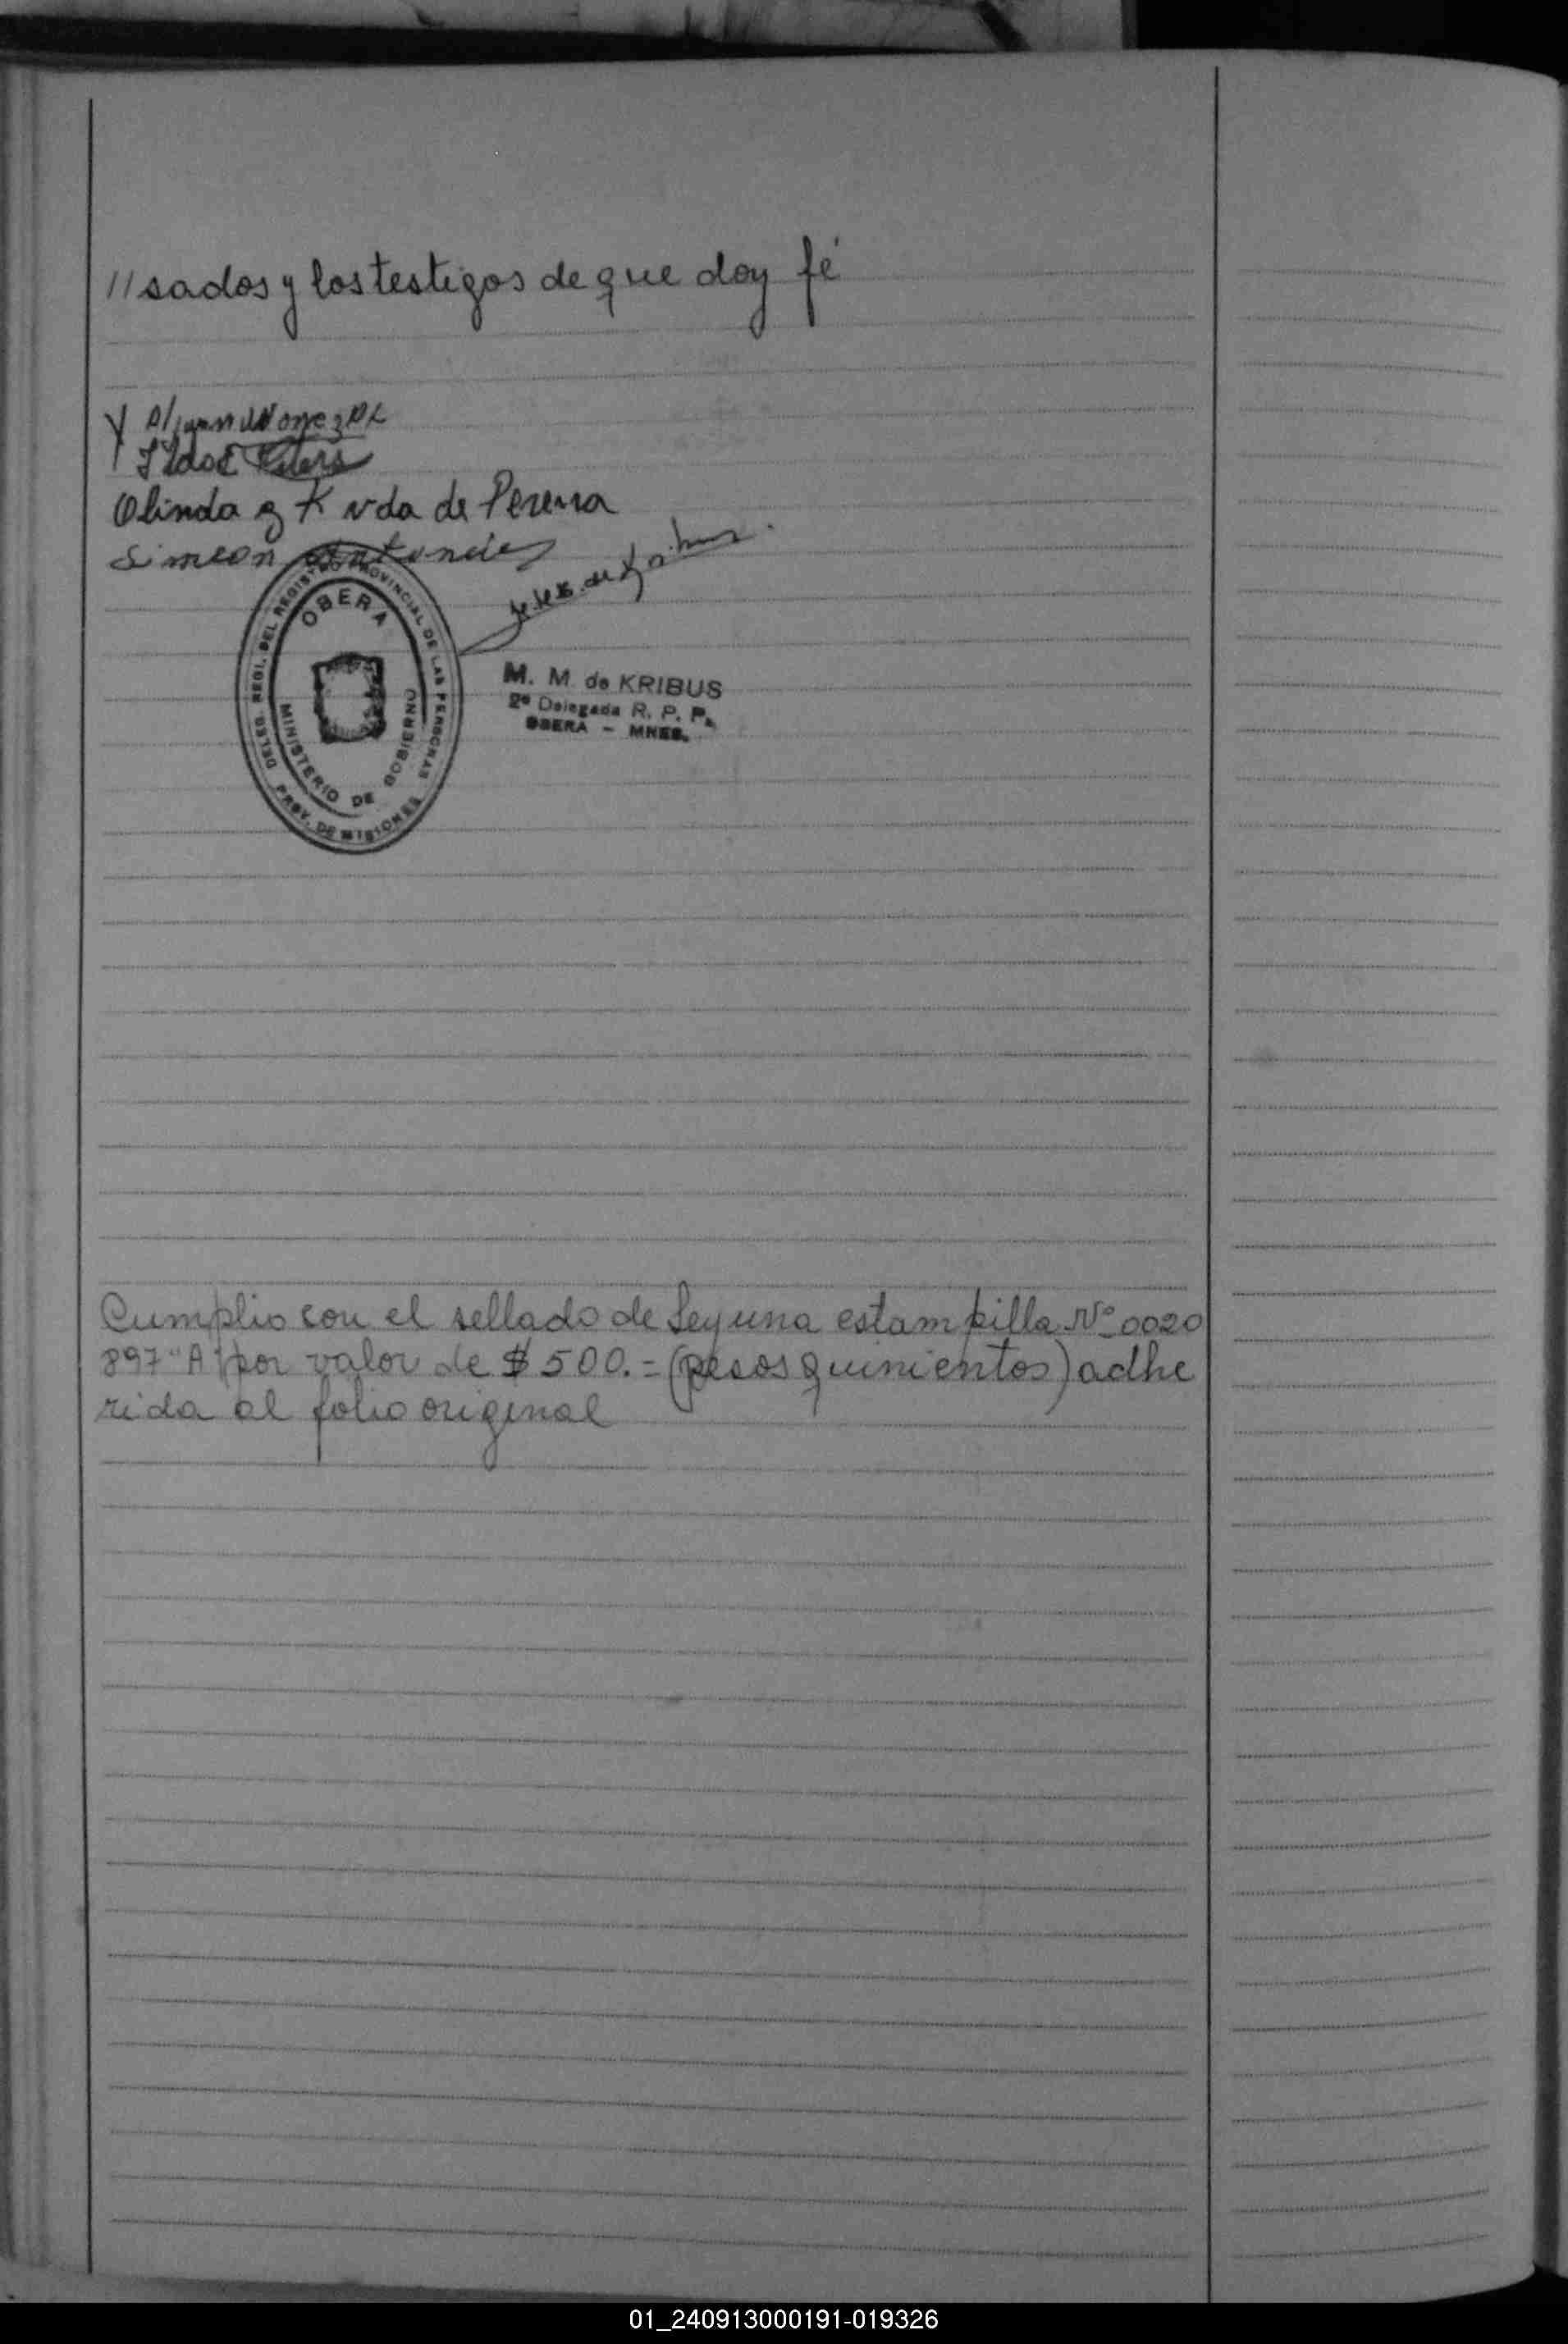 // sados y los testigos de que doy fé
Olinda K vda de Pereira
Simeon Antunes
DELEG. REGI. DEL REGISTRO PROVINCIAL DE LAS PERSONAS
OBERA
MINISTERIO DE GOBIERNO
PROV. DE MISIONES
M. M. de KRIBUS
2ª Delegada R. P. P.
OBERA - MNES.
Cumplio con el sellado de Ley una estampilla Nº 0020
897 "A" por valor de $ 500.= (pesos quinientos) adhe
rida al folio original
01_240913000191-019326